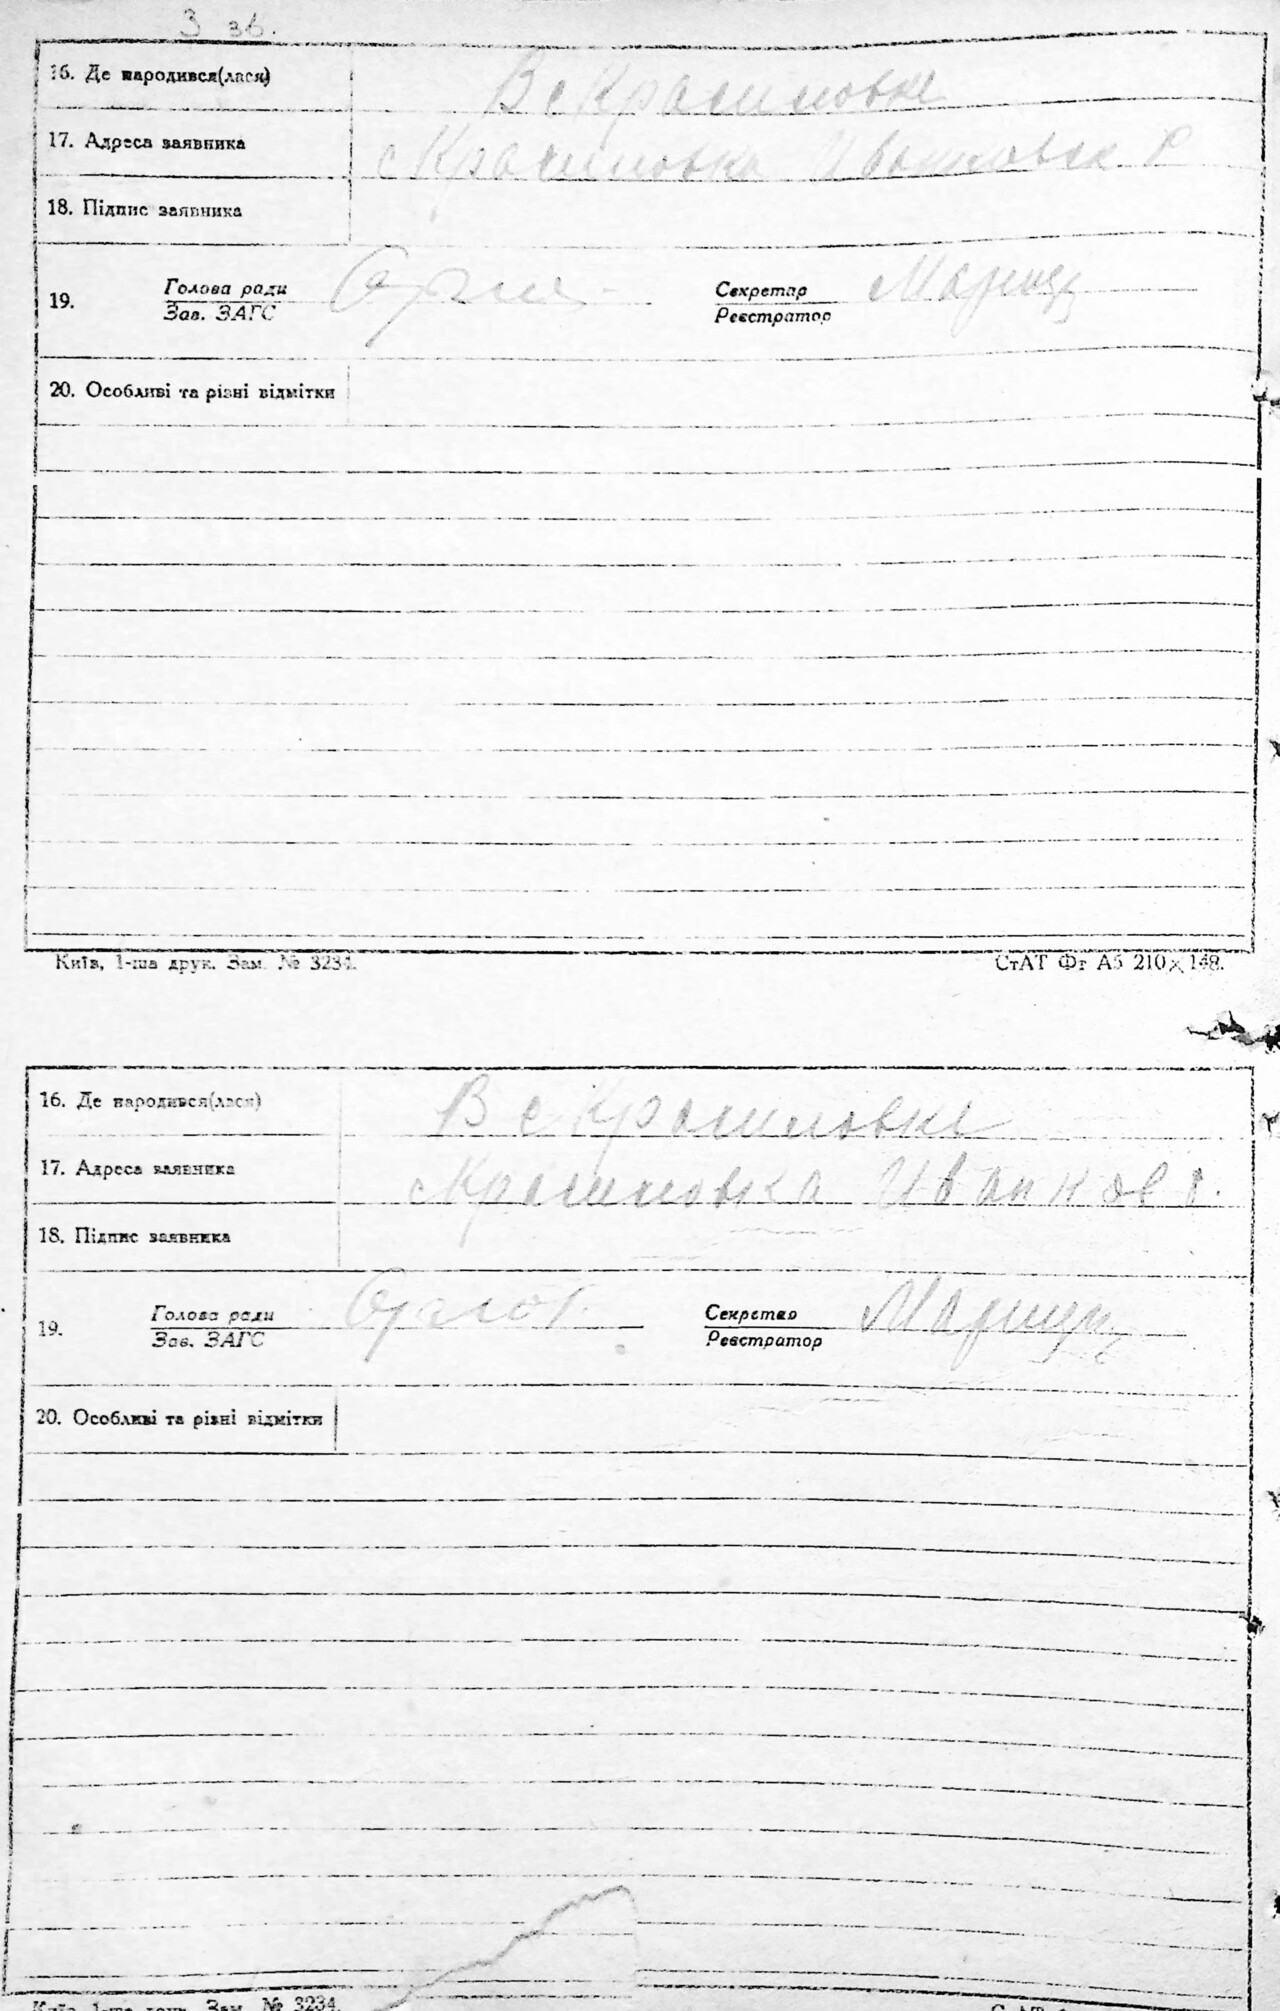 3 зв.
16. Де народився(лася) В с Красиловке
17. Адреса заявника с Красиловка Иванковск Р
18. Підпис заявника
19. Голова ради Секретар
Зав. ЗАГС Реєстратор
20. Особливі та різні відмітки
Київ, 1-ша друк. Зам. № 3234. СтАТ Фт А5 210×148.
16. Де народився(лася) В с Красиловке
17. Адреса заявника с Красиловка Иванков р.
18. Підпис заявника
19. Голова ради Секретар
Зав. ЗАГС Реєстратор
20. Особливі та різні відмітки
Київ, 1-ша друк. Зам. № 3234.